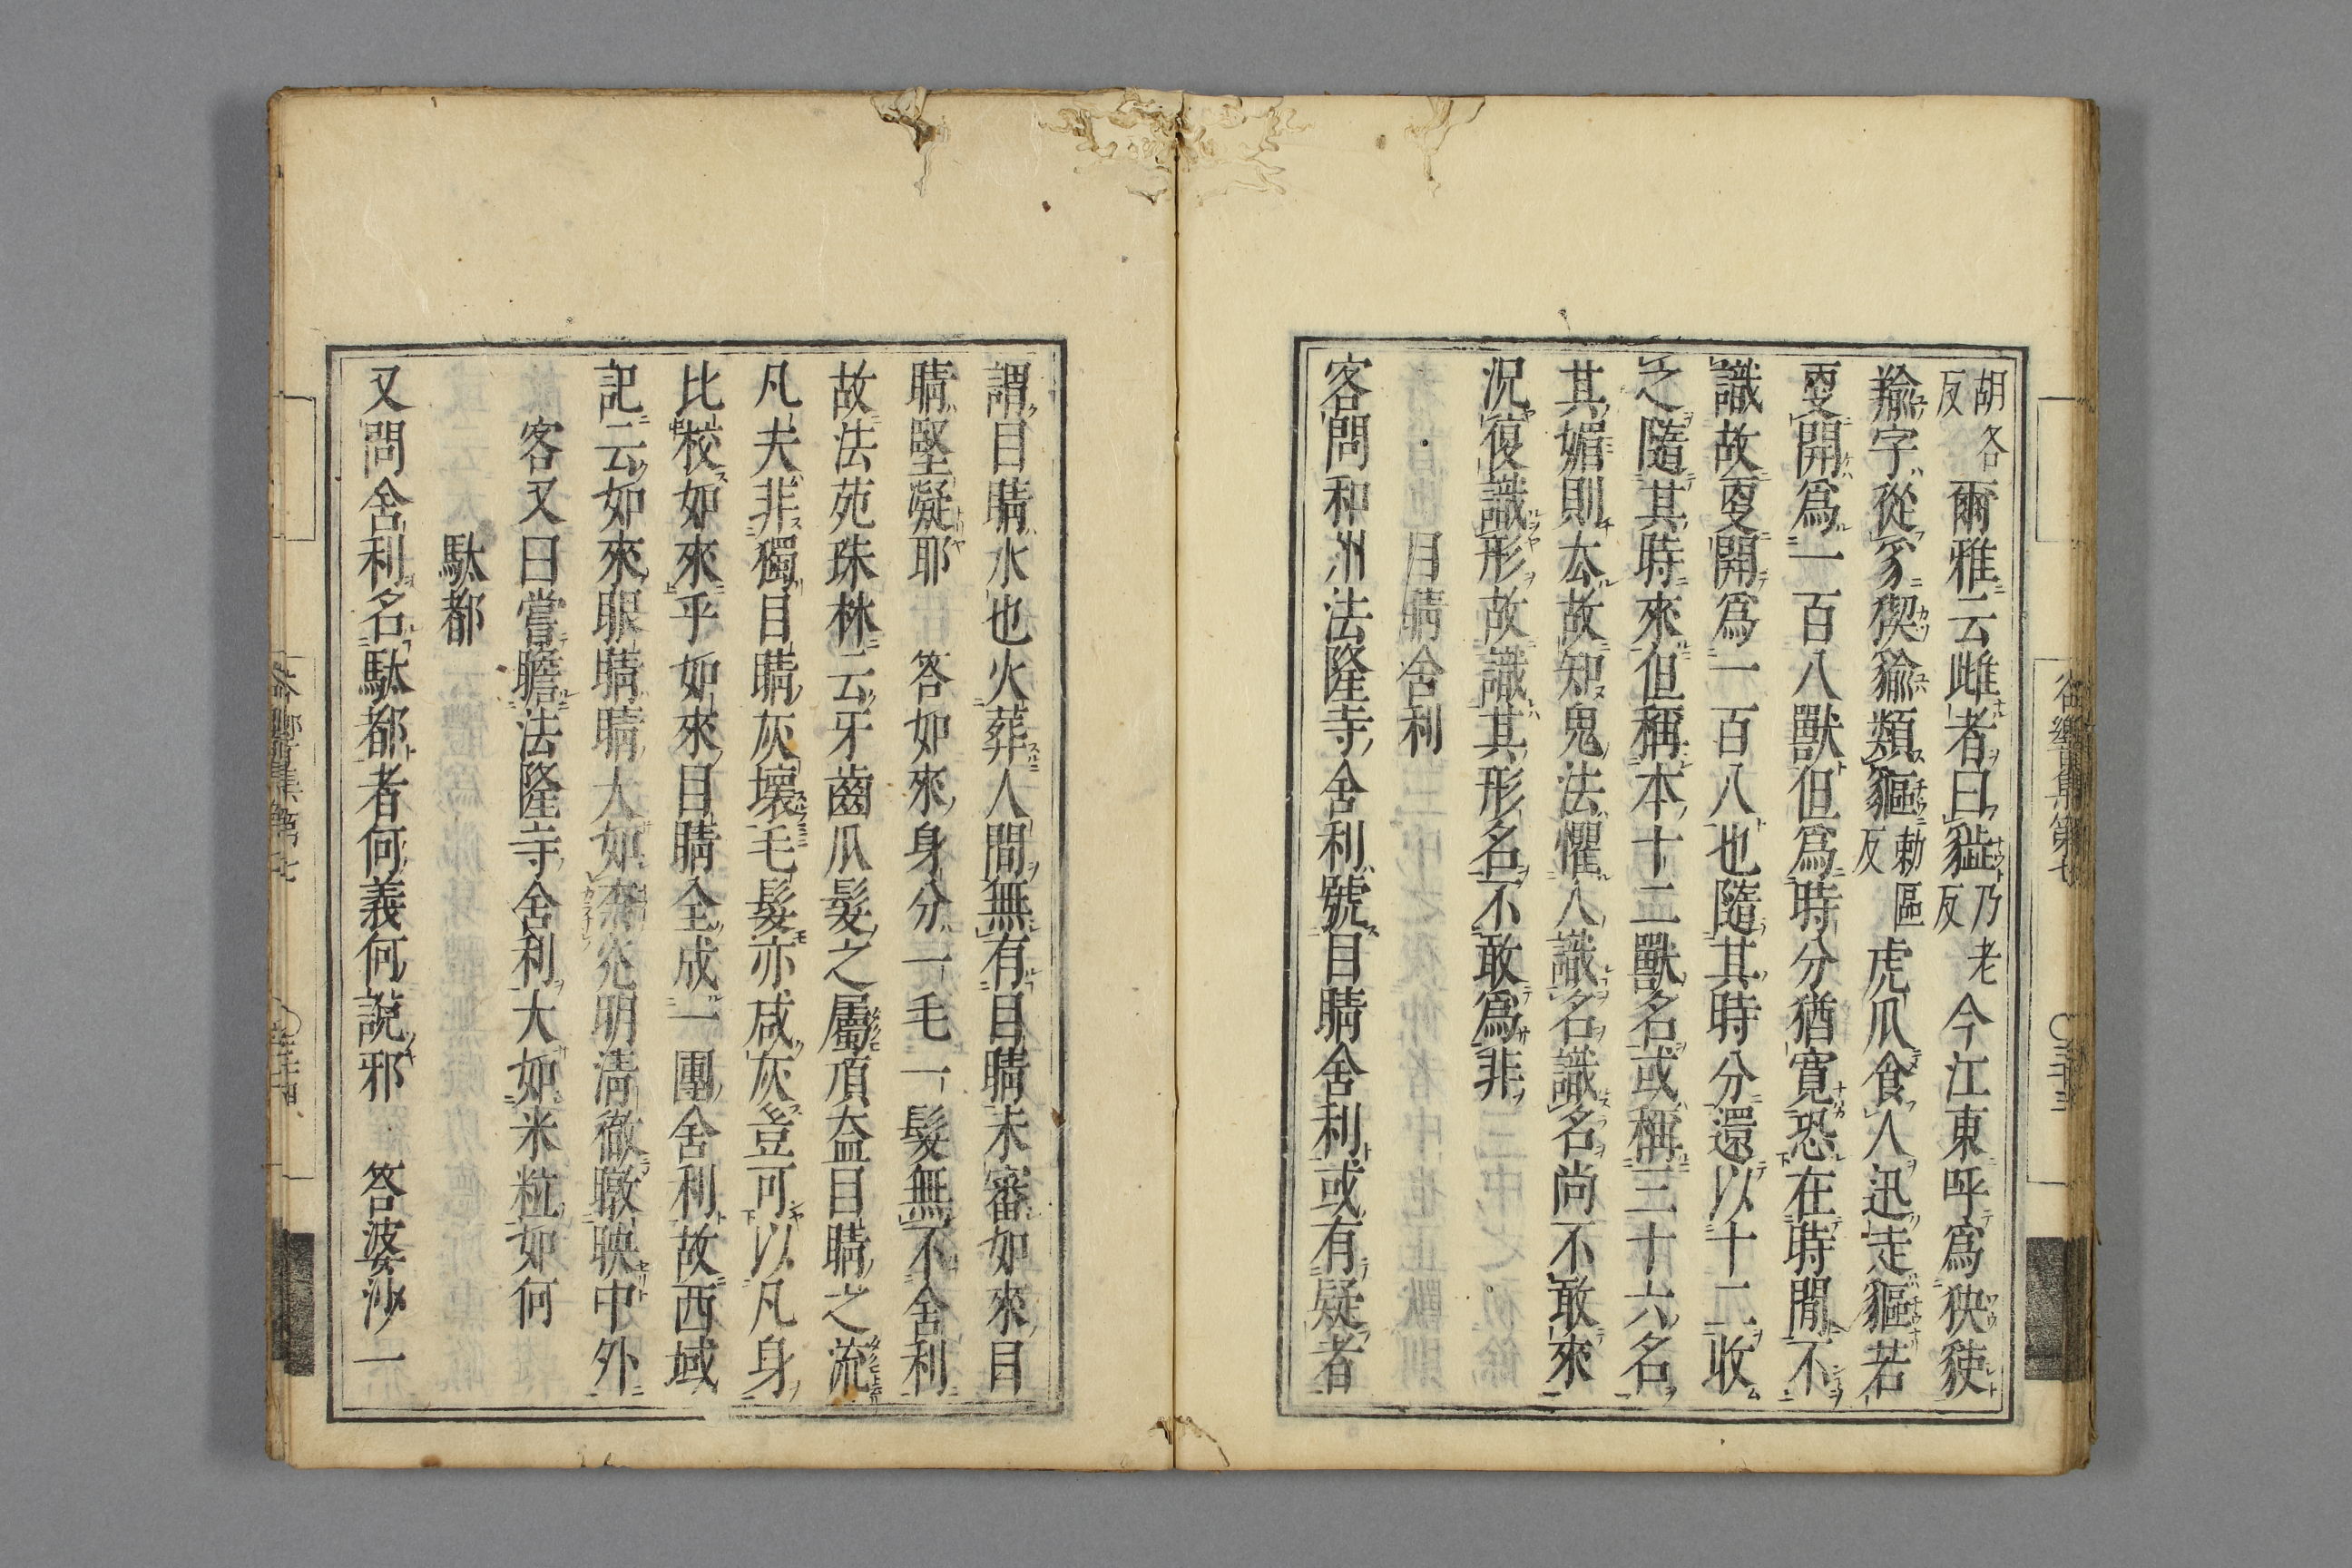 胡各反爾雅云雌者曰𧳅乃老反今江東呼爲狹𧳅
羭字從豸猰貐類貙勅區反虎爪食人迅走貙若
更開爲一百八獸但爲時分猶寛恐在時間不
識故更開爲一百八也隨其時分還以十二收
之隨其時來但稱本十二獸名或稱三十六名
其媚則去故知鬼法懼人識名識名尚不敢來
況復識形故識其形名不敢爲非
目睛舍利
客問和州法隆寺舍利號目睛舍利或有疑者
谷響集第七
謂目睛水也火葬人間無有目睛未審如來目
睛堅凝耶 答如來身分一毛一髮無不舍利
故法苑珠林云牙齒爪髮之屬頂蓋目睛之流
凡夫非獨目睛灰壞毛髮亦咸灰豈可以凡身
比校如來乎如來目睛全成一團舍利故西域
記云如來眼睛睛大如柰光明清徹暾映中外
客又曰嘗瞻法隆寺舍利大如米粒如何
馱都
又問舍利名馱都者何義何說邪 答婆沙一